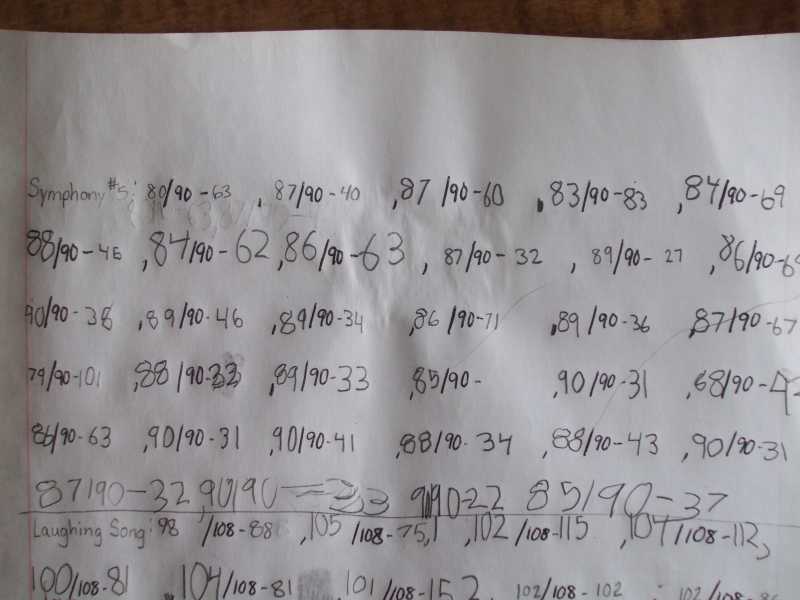 Symphony #5: 80/90-63 , 87/90-40 ,87/90-60 ,83/90-83 ,84/90-69
88/90-46 ,84/90-62 ,86/90-63 , 87/90-32 , 89/90-27 ,86/90-6
90/90-38 ,89/90-46 ,89/90-34 ,86/90-71 ,89/90-36 ,87/90-67
79/90-101 ,88/90-33 ,89/90-33 ,85/90- ,90/90-31 ,68/90-4
86/90-63 ,90/90-31 ,90/90-41 ,88/90-34 ,88/90-43 ,90/90-31
87/90-32 ,90/90-33 90-22 85/90-37
Laughing Song: 98/108-88 ,105/108-75,1 ,102/108-115 ,104/108-112,
100/108-81 ,104/108-81 ,101/108-152 ,102/108-102 ; 102/108-